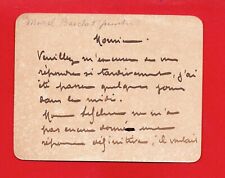 Marcel Baschet peintre
Monsieur,
Veuillez m'excuser de vous
répondre si tardivement, j'ai
été passer quelques jours
dans le midi.
Mon ne m'a
pas encore donné une
réponse définitive, il voulait